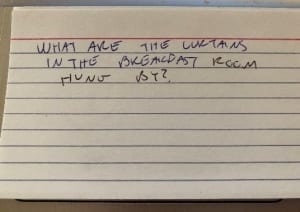 WHAT ARE THE CURTAINS
IN THE BREAKFAST ROOM
HUNG BY?